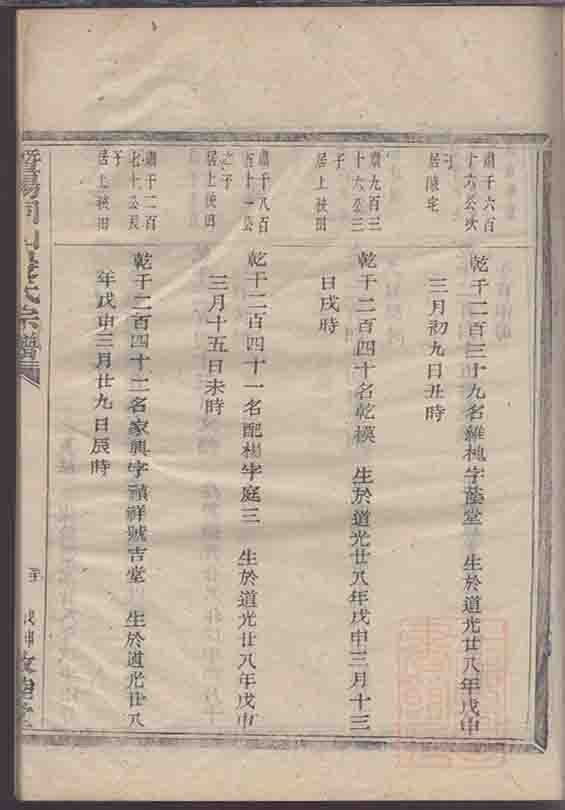 肅千六百
十六公次
子
居陳宅
乾千二百三十九名維槐字蔭堂 生於道光廿八年戊申
三月初九日丑時
肅九百三
十六公三
子
居上荻田
乾千二百四十名乾模 生於道光廿八年戊申三月十三
日戌時
肅千八百
四十一公
之子
居上荻田
乾千二百四十一名配楊字庭三 生於道光廿八年戊申
三月十五日未時
肅千二百
七十公長
子
居上荻田
乾千二百四十二名家興字禎祥號吉堂 生於道光廿八
年戊申三月廿九日辰時
暨陽
氏宗譜